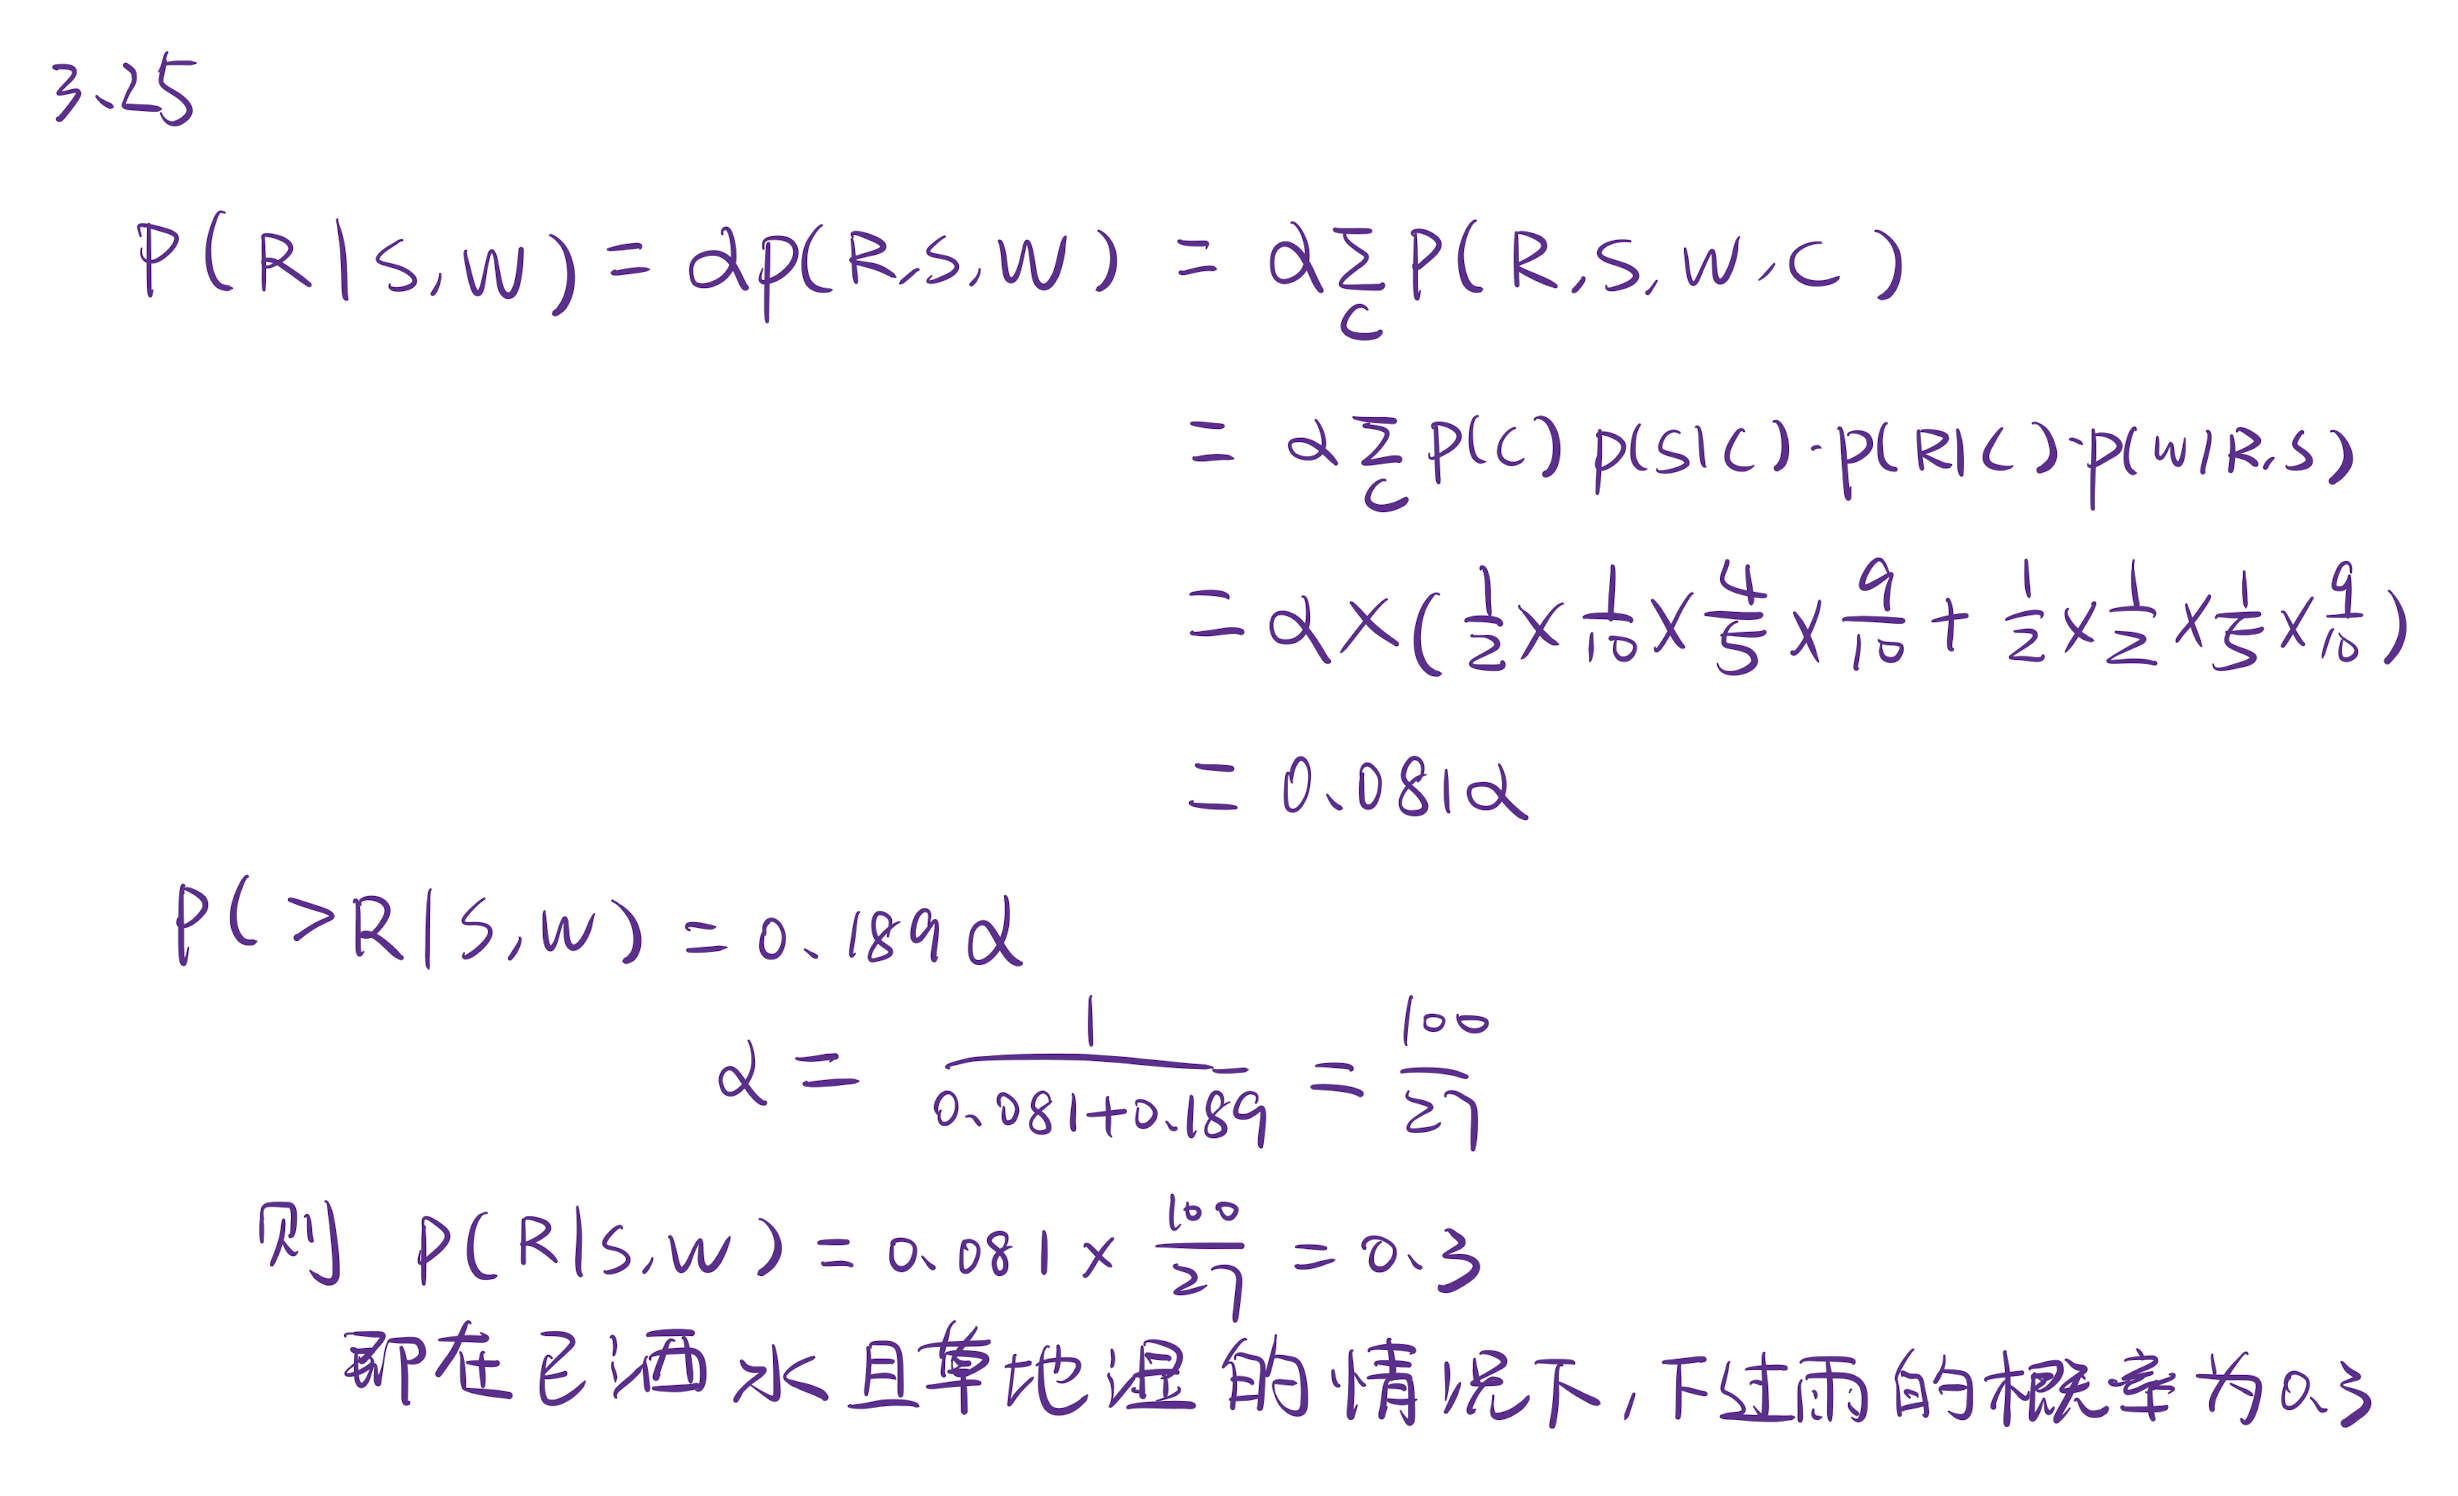 3.25
P(R|S,W) = αP(R,S,W) = α∑P(R,S,W,C)
C
= α∑P(C)P(S|C)·P(R|C)·P(W|R,S)
C
= α×(1/2×1/10×4/5×9/10+1/2×1/2×1/5×9/10)
= 0.081α
P(¬R|S,W) = 0.189α
α = 1/(0.081+0.189) = 100/27
则 P(R|S,W) = 0.081×100/27 = 0.3
即在已洒水且草地湿的情况下,下过雨的概率为0.3